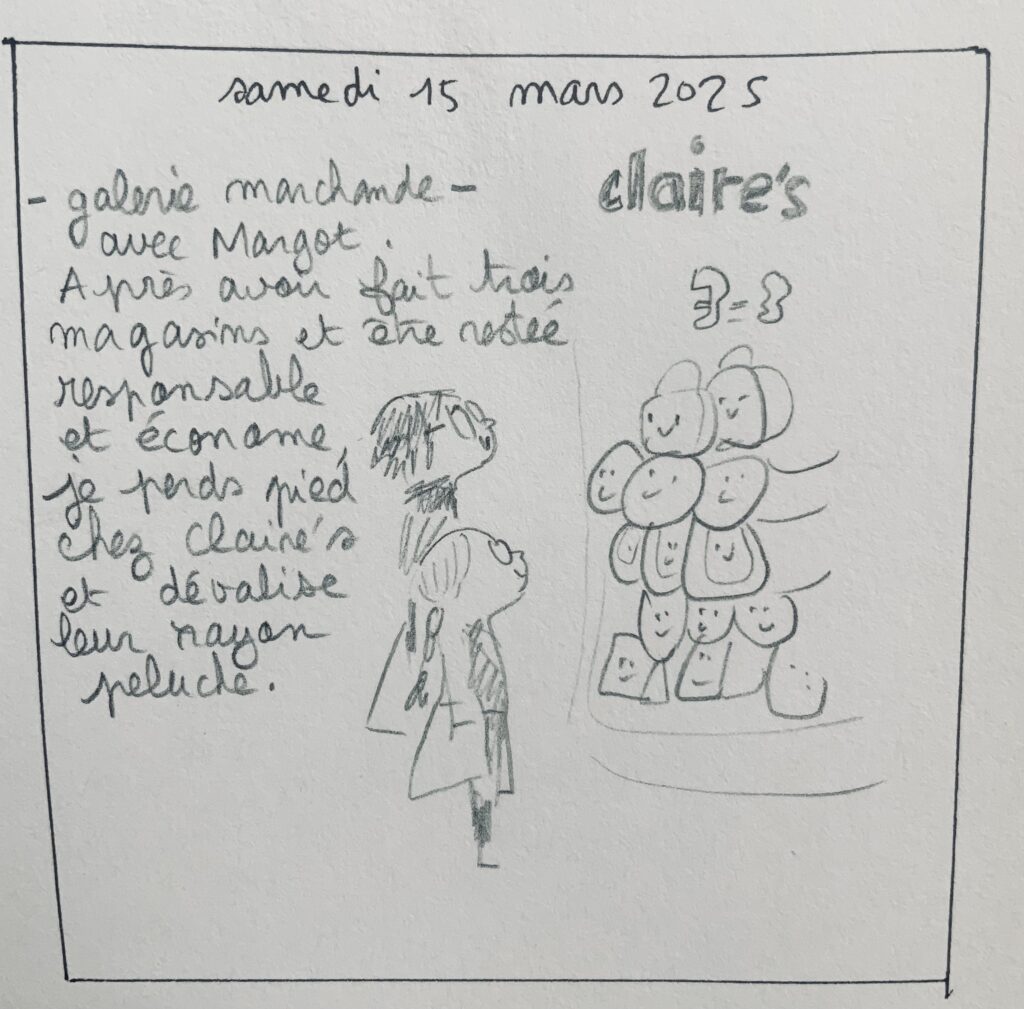 samedi 15 mars 2025
- galerie marchande -
avec Margot.
Après avoir fait trois
magasins et être restée
responsable
et économe,
je perds pied
chez Claire's
et dévalise
leur rayon
peluche.
claire's
3 = 3